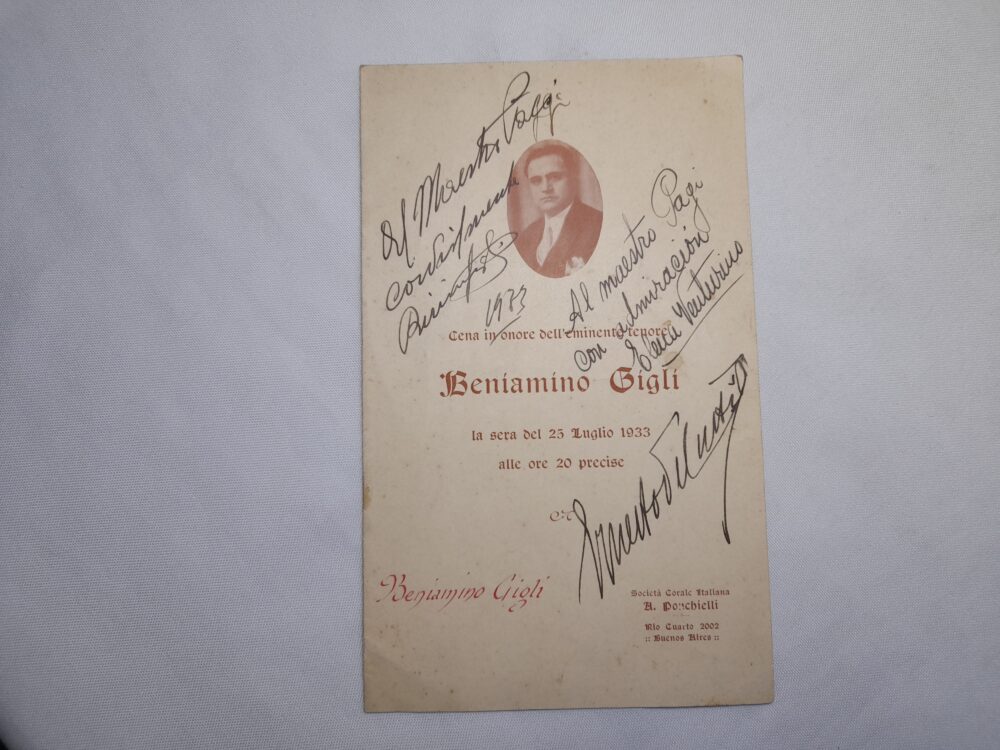 Al Maestro Paggi
cordialmente
1933
Al maestro Pagi
con admiración
Venturino
Cena in onore dell'eminente tenore
Beniamino Gigli
la sera del 25 Luglio 1933
alle ore 20 precise
Beniamino Gigli
Società Corale Italiana
A. Ponchielli
Rio Cuarto 2002
:: Buenos Aires ::